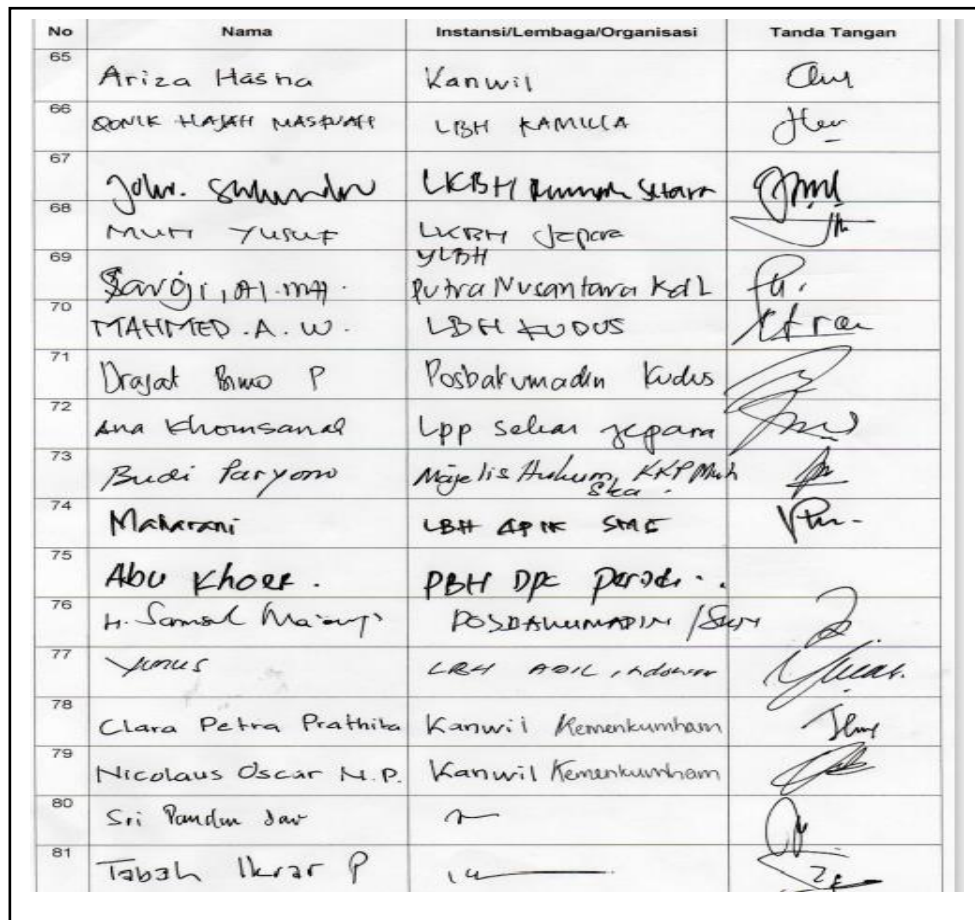 No Nama Instansi/Lembaga/Organisasi Tanda Tangan
65 Ariza Hasna Kanwil
66 QONIK HAJAH MASFUAH LBH KAMILLA
67 John. LKBH Rumah Setara
68 MUH YUSUF LKBH Jepara
69 Saroji, YLBH
Putra Nusantara Kdl
70 MAHMED . A . W . LBH KUDUS
71 Drajat Bimo P Posbakumadin Kudus
72 Ana Khomsanah Lpp sekar jepara
73 Budi Paryono Majelis Hukum KKP Muh
Ska .
74 Maharani LBH APIK SMG
75 Abu Khoer . PBH DPC Peradi . .
76 H. Samsul POSBAKUMADIN /
77 Yunus LBH ADIL
78 Clara Petra Prathita Kanwil Kemenkumham
79 Nicolaus Oscar N.P. Kanwil Kemenkumham
80 Sri
81 Tabah Ikrar P